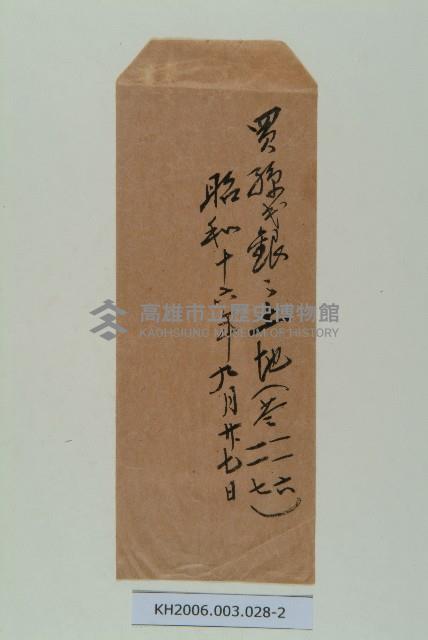 買孫戈銀之土地(苓一一一六 一一七)
昭和十六年九月廿七日
高雄市立歷史博物館
KAOHSIUNG MUSEUM OF HISTORY
KH2006.003.028-2